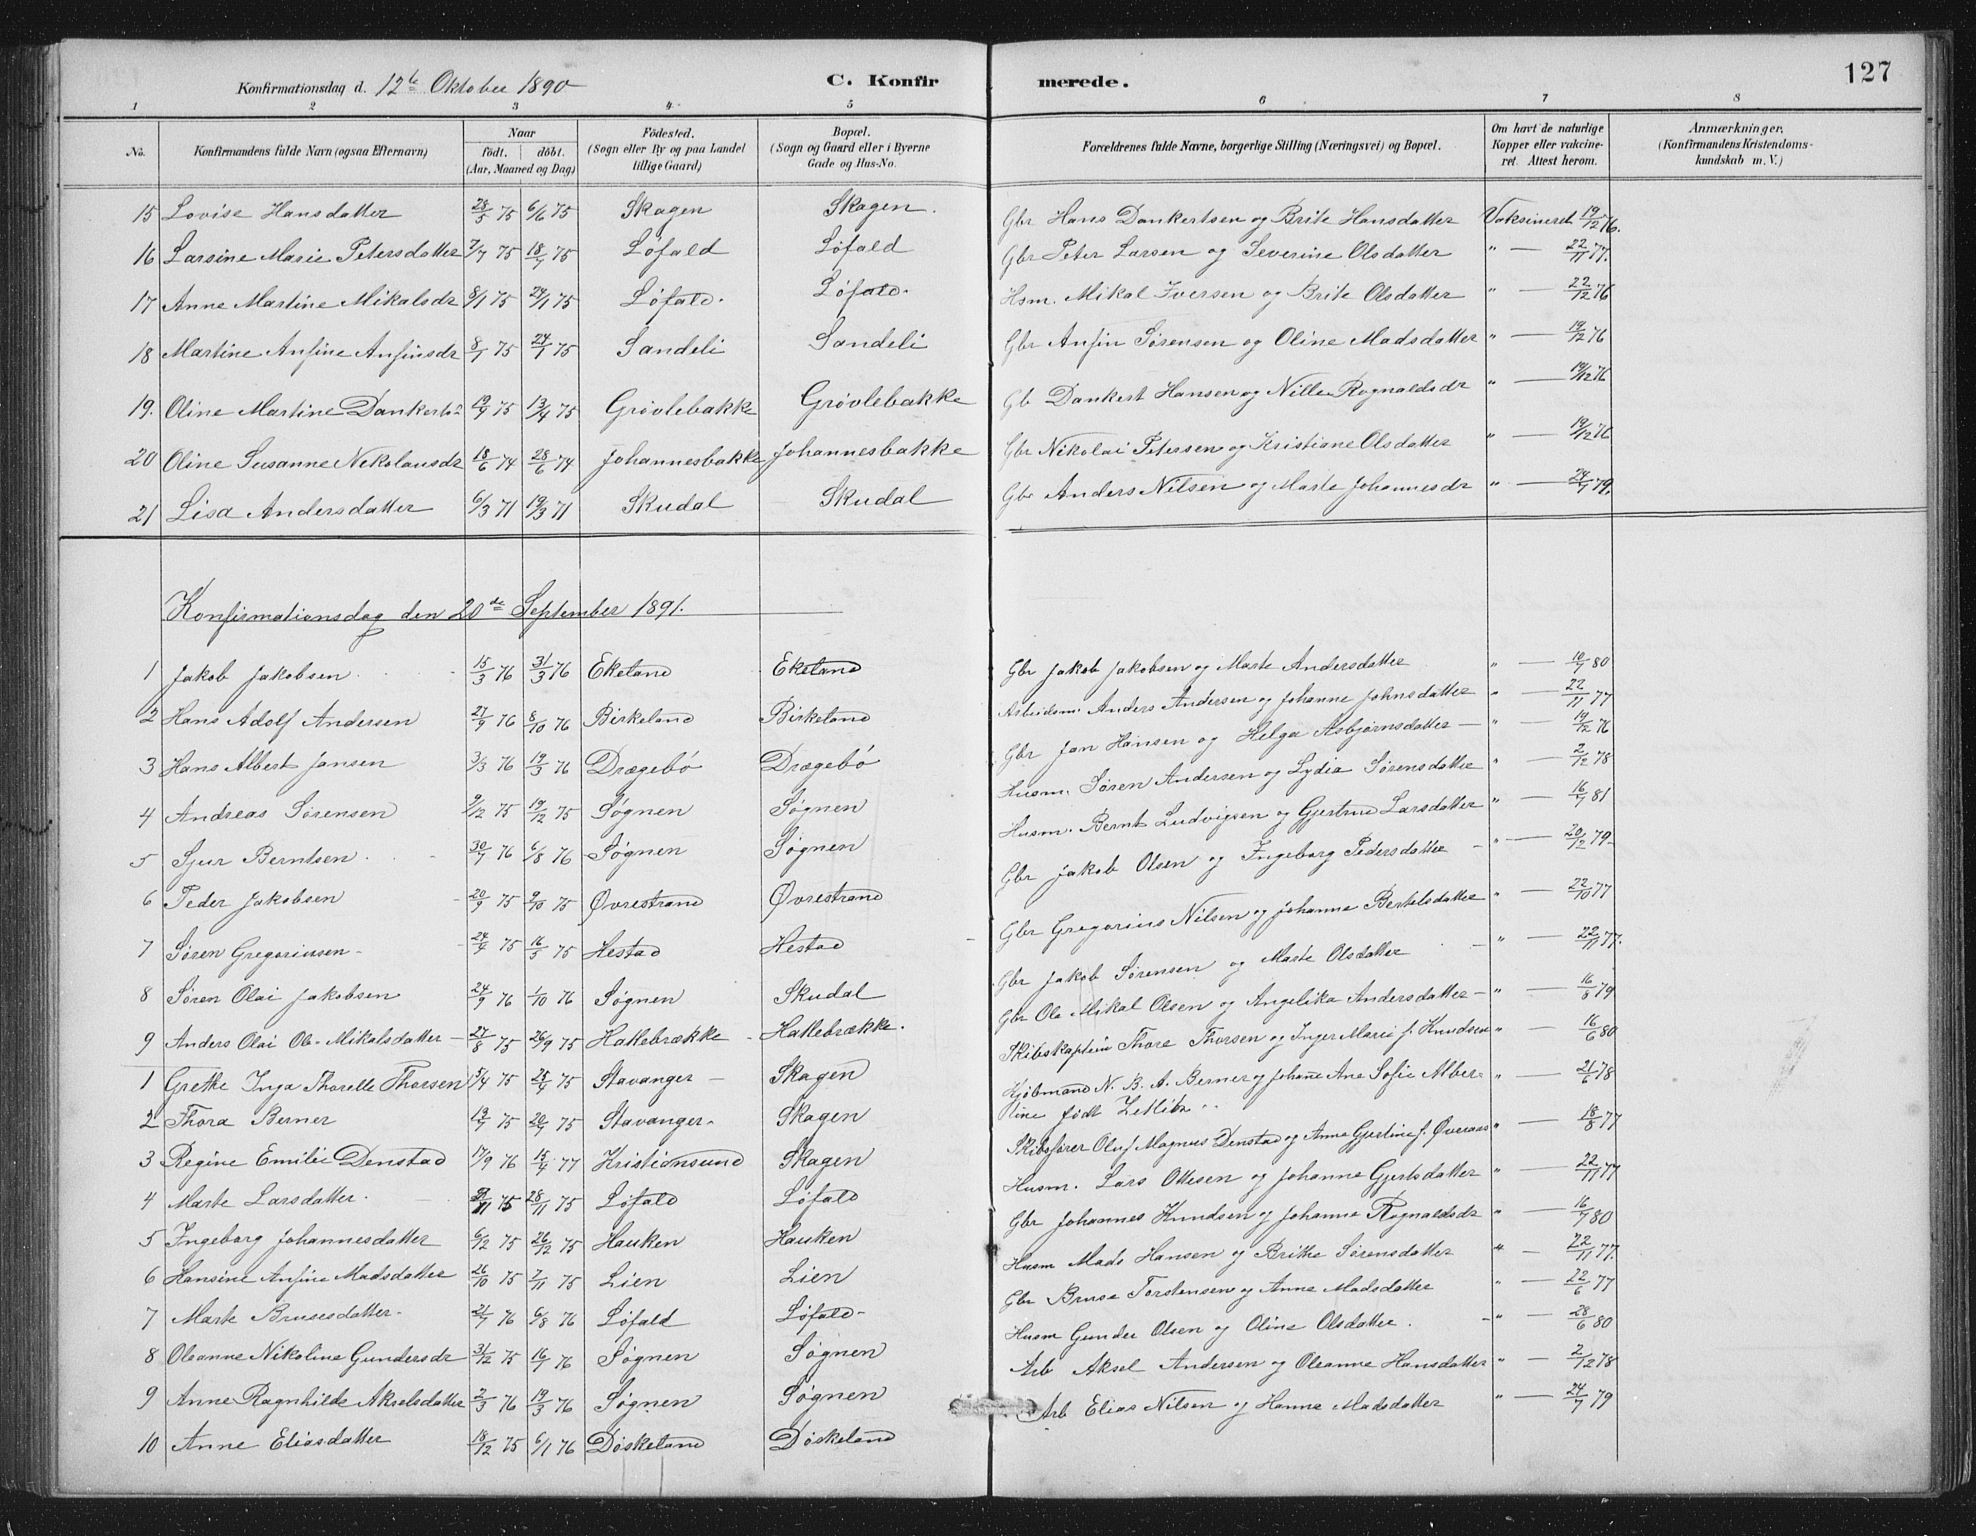 127
Konfirmationsdag d. 12te Oktober 1890
C. Konfirmerede.
1 2 3 4 5 6 7 8
No. Konfirmandens fulde Navn (ogsaa Efternavn) Naar födt. döbt. (Aar, Maaned og Dag) Födested. (Sogn eller By og paa Landet tillige Gaard) Bopæl. (Sogn og Gaard eller i Byerne Gade og Hus-No. Forældrenes fulde Navne, borgerlige Stilling (Næringsvei) og Bopæl. Om havt de naturlige Kopper eller vakcineret. Attest herom. Anmærkninger, (Konfirmandens Kristendomskundskab m. V.)
15 Lovise Hansdatter 28/5 75 6/6 75 Skagen Skagen. Gbr Hans Dankertsen og Brite Hansdatter Vaksineret 19/12 76.
16 Larsine Marie Petersdatter 7/7 75 18/7 75 Løfald Løfald Gbr Peter Larsen og Severine Olsdatter " — 22/11 77.
17 Anne Martine Mikalsdr 8/1 75 24/1 75 Løfald. Løfald. Hsm. Mikal Iversen og Brite Olsdatter " — 22/12 76
18 Martine Anfine Anfinsdr 8/1 75 24/1 75 Sandeli Sandeli Gbr Anfin Sørensen og Oline Madsdatter " — 19/12 76
19. Oline Martine Dankerts 75 13/4 75 Grøvlebakke Grøvlebakke Gb Dankert Hansen og Nille Rognaldsdr " — 19/12 76
20 Oline Susanne Nikolausdr 18/6 74 28/6 74 Johannesbakke Johannesbakke Gbr Nikolai Petersen og Kristiane Olsdatter " — 19/12 76
21 Lisa Andersdatter 6/3 71 19/3 71 Skudal Skudal Gbr Anders Nilsen og Marte Johannesdr " — 24/7 79.
Konfirmationsdag den 20de September 1891.
1 Jakob Jakobsen 15/3 76 31/3 76 Ekeland Ekeland Gbr Jakob Jakobsen og Marte Andersdatter " — 10/7 80
2 Hans Adolf Andersen 27/9 76 8/10 76 Birkeland Birkeland Arbeidsm. Anders Andersen og Johanne Johnsdatter " — 22/11 77
3 Hans Albert Jansen 3/3 76 19/3 76 Drægebö Drægebö Gbr Jan Hansen og Helga Asbjørnsdatter — " — 19/12 76
4 Andreas Sørensen 9/12 75 19/12 75 Søgnen Søgnen Husm. Søren Andersen og Lydia Sørensdatter " — 2/12 78
5 Sjur Berntsen. 30/7 76 6/8 76 Søgnen Søgnen Husm. Bernt Ludvigsen og Gjertrud Larsdatter " — 16/7 81
6 Peder Jakobsen 20/9 75 9/10 75 Øvrestrand Øvrestrand Gbr Jakob Olsen og Ingeborg Pedersdatter " — 20/12 79
7 Søren Gregoriusen 24/4 75 16/5 75 Hestad Hestad Gbr Gregorius Nilsen og Johanna Bertelsdatter " — 22/10 77
8 Søren Olai Jakobsen 24/9 76 1/10 76 Søgnen Skudal Gbr Jakob Sørensen og Marte Olsdatter " — 22/11 77.
9 Anders Olai Ole-Mikalsdatter 27/8 75 26/9 75 Hallebrække Hallebrække. Gbr Ole Mikal Olsen og Angelika Andersdatter — " — 16/8 79
1 Grethe Inga Thorelle Thorsen 5/4 75 25/4 75 Stavanger Skagen Skibskaptein Thore Thorsen og Inger Marie f. Knudsen " — 16/6 80
2 Thora Berner 75 75 Stavanger Skagen Kjöbmand N. B. A. Berner og Johane Ane Sofie Alber- " — 21/6 78
tine født Zetlitz
3 Regine Emilie Denstad 17/9 76 15/4 77 Kristiansund Skagen Skibsfører Oluf Magnus Denstad og Anne Gjertine f. Øveraas " — 18/8 77
4 Marte Larsdatter. 75 28/11 75 Løfald Løfald Husm. Lars Ottesen og Johanne Gjertsdatter " — 22/11 77
5 Ingeborg Johannesdatter 6/12 75 26/12 75 Hauken Hauken Gbr Johannes Knudsen og Johanne Rognaldsdr " — 16/7 80
6 Hansine Anfine Madsdatter 26/10 75 7/11 75 Lien Lien Husm Mads Hansen og Britte Sørensdatter " — 22/11 77.
7 Marte Brusesdatter 21/7 76 6/8 76 Løfald Løfald Gbr Bruse Torstensen og Anne Madsdatter " — 22/6 77
8 Oleanne Nikoline Gundersdr 31/12 75 76 Søgnen Søgnen Husm Gunder Olsen og Oline Olsdatter. " — 28/6 80
9 Anne Ragnhilde Akselsdatter 2/3 76 19/3 76 Søgnen Søgnen Arb Aksel Andersen og Oleanne Hansdatter " — 2/12 78
10 Anne Eliasdatter 18/12 75 6/1 76 Döskeland Döskeland Arb Elias Nilsen og Hanne Madsdatter " — 24/7 79